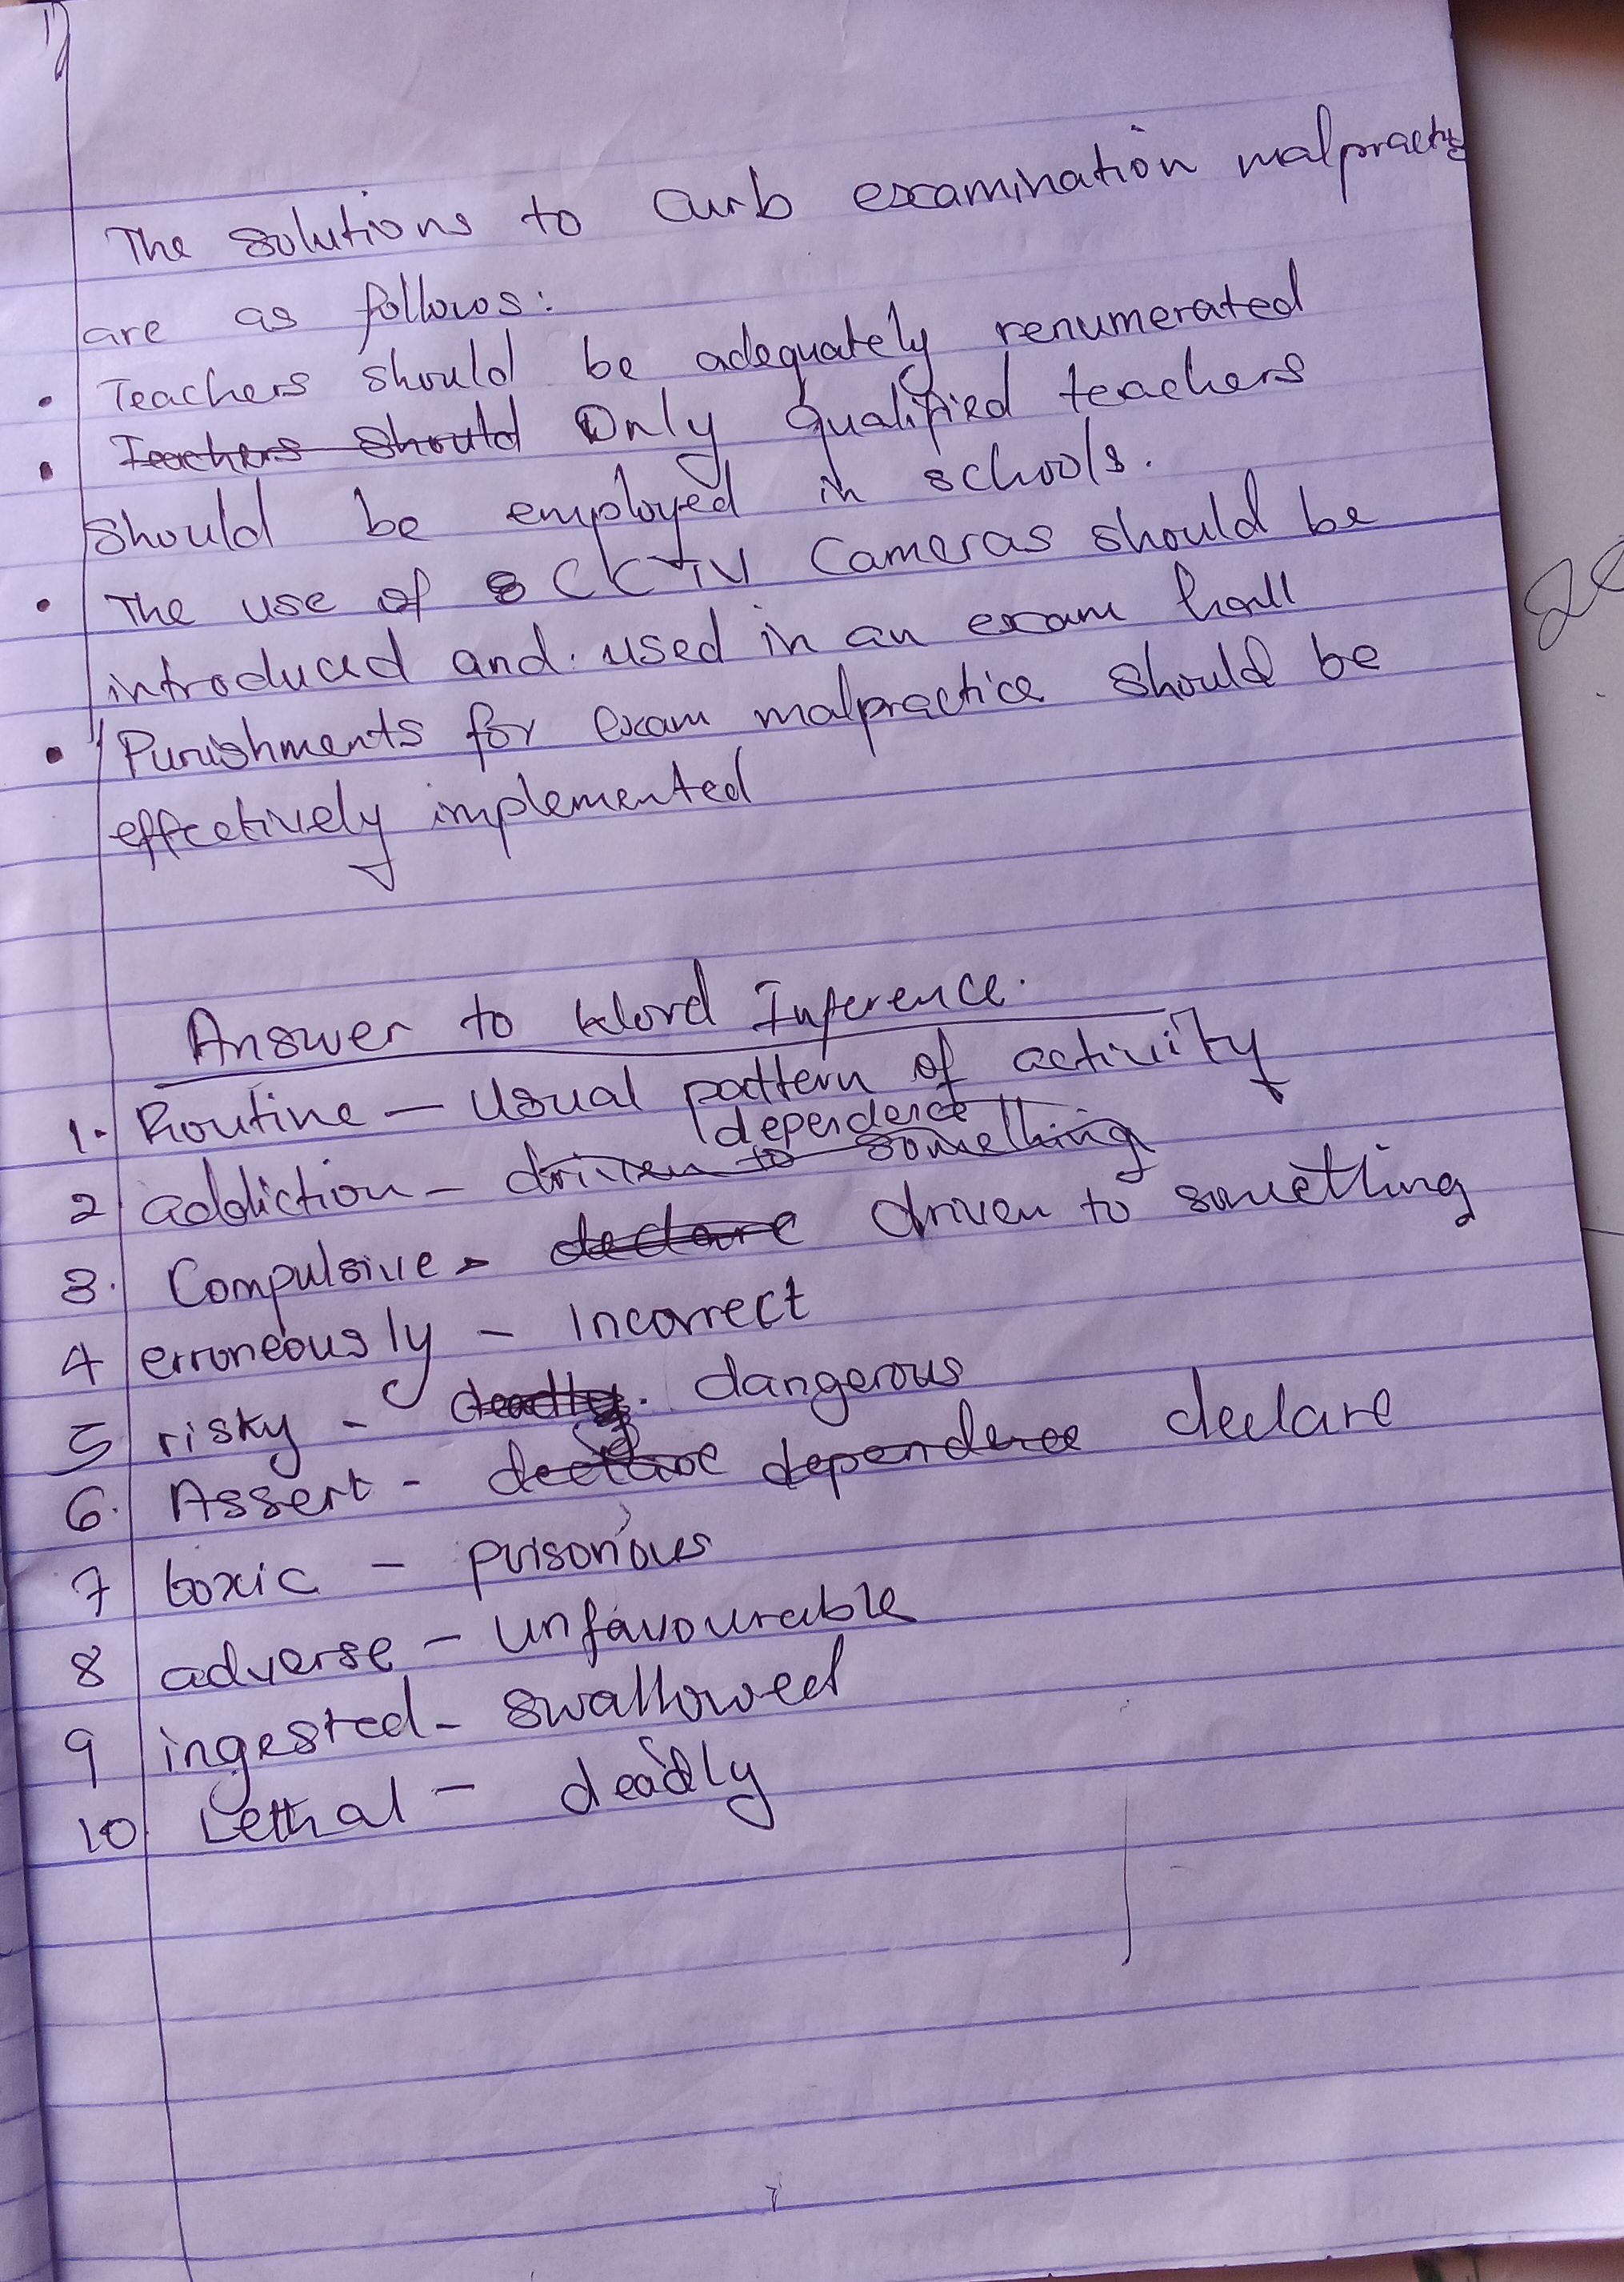 The solutions to curb examination malpractice
are as follows:
• Teachers should be adequately renumerated
• Teachers should Only qualified teachers
should be employed in schools.
• The use of CCTV Cameras should be
introduced and used in an exam hall
• Punishments for exam malpractice should be
effectively implemented
Answer to Word Inference.
1. Routine – Usual pattern of activity
dependence
2 addiction – driven to something
3. Compulsive – declare driven to something
4 erroneously – Incorrect
5 risky – deadly. dangerous
6. Assert – declare dependence declare
7 toxic – poisonous
8 adverse – Unfavourable
9 ingested – swallowed
10 Lethal – deadly